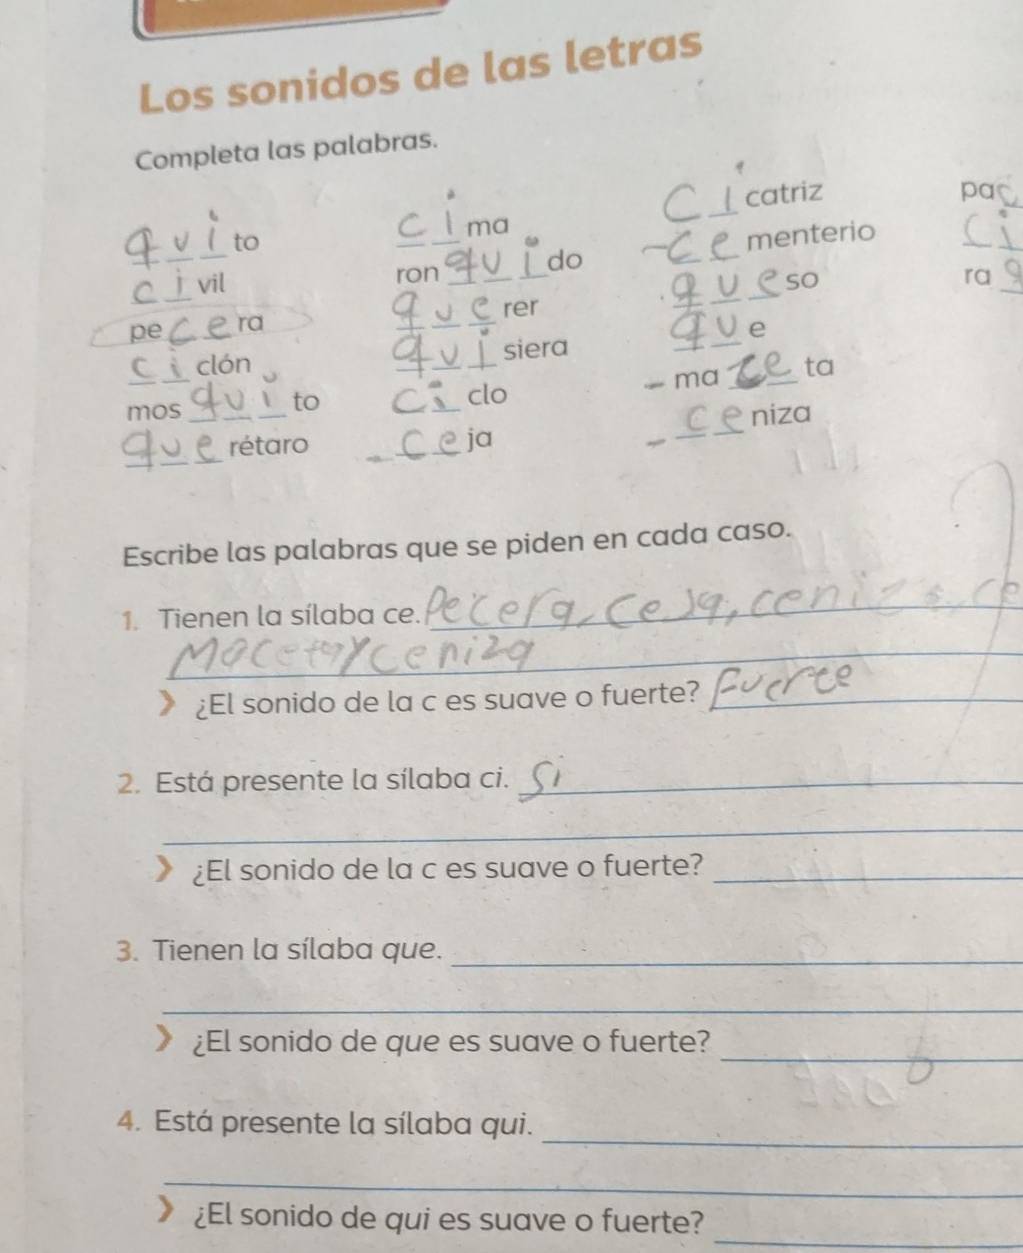 Los sonidos de las letras
Completa las palabras.
quito
cima
cicatriz
pac
civil
ronquido
cementerio
ci
pecera
querer
queso
raq
ciclón
quisiera
que
mosquito
ciclo
maceta
querétaro
ceja
ceniza
Escribe las palabras que se piden en cada caso.
1. Tienen la sílaba ce. Pecera, ceja, ceniza, ce
Maceta y ceniza
¿El sonido de la c es suave o fuerte? Fuerte
2. Está presente la sílaba ci. Si
¿El sonido de la c es suave o fuerte?
3. Tienen la sílaba que.
¿El sonido de que es suave o fuerte?
4. Está presente la sílaba qui.
¿El sonido de qui es suave o fuerte?